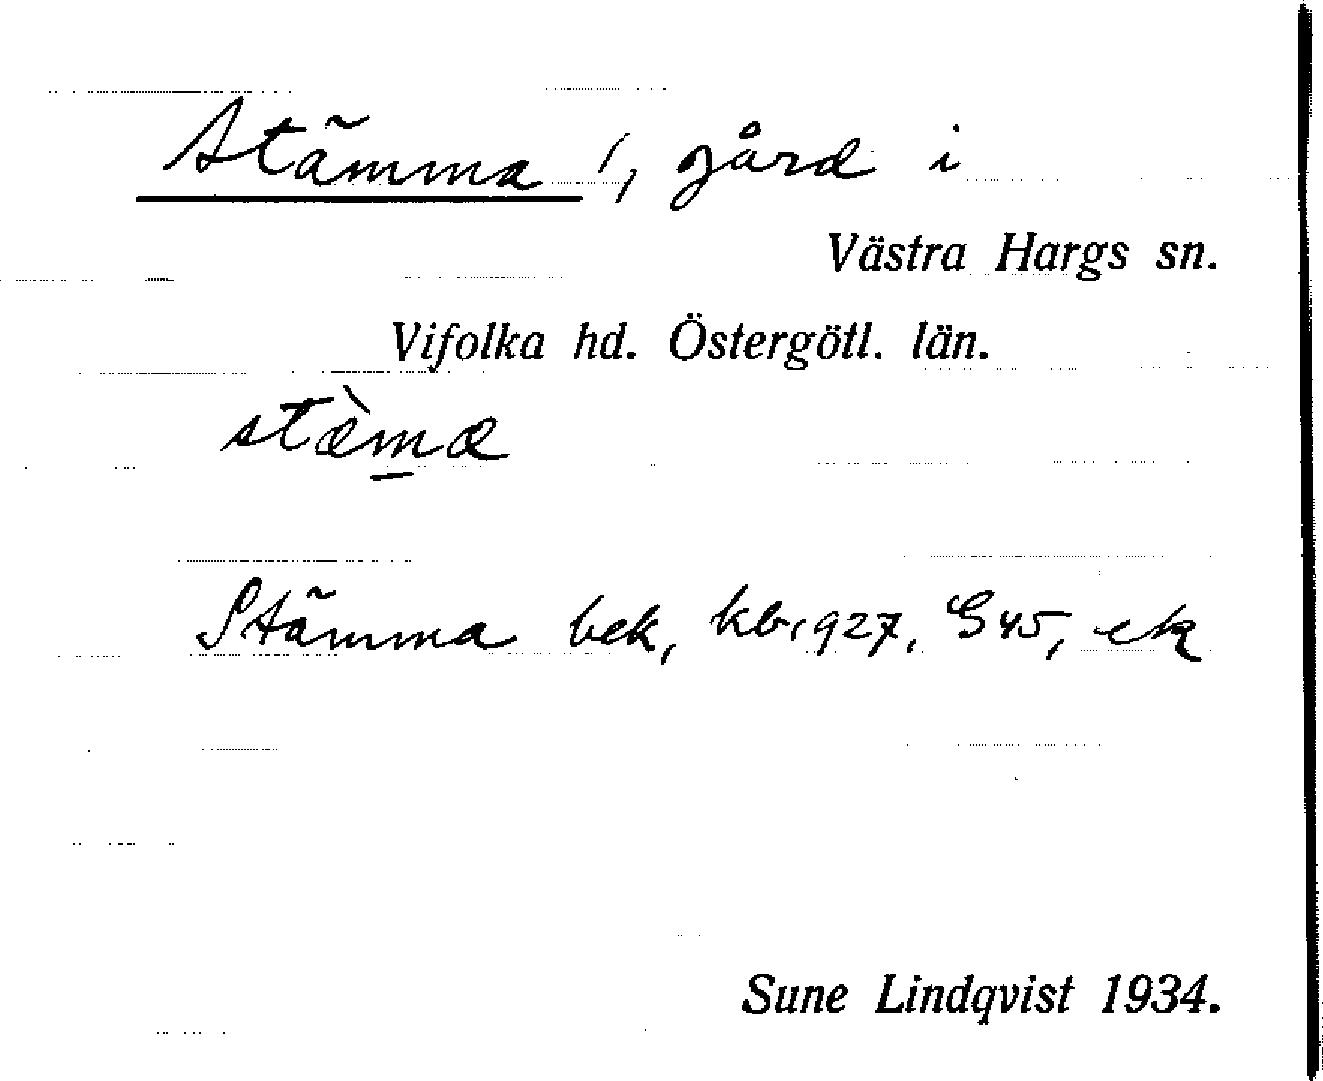 Stämma /, gård i
Västra Hargs sn.
Vifolka hd. Östergötl. län.
stæ̀m̲a
Stämma bek, kb 1927, G45, ek
Sune Lindqvist 1934.